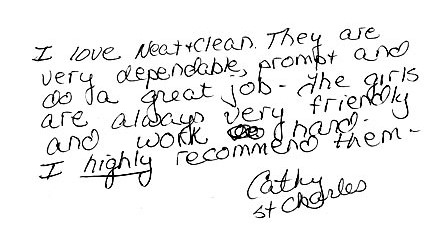 I love Neat+Clean. They are
very dependable, prompt and
do a great job - the girls
are always very friendly
and work hard.
I highly recommend them -
Cathy
St Charles